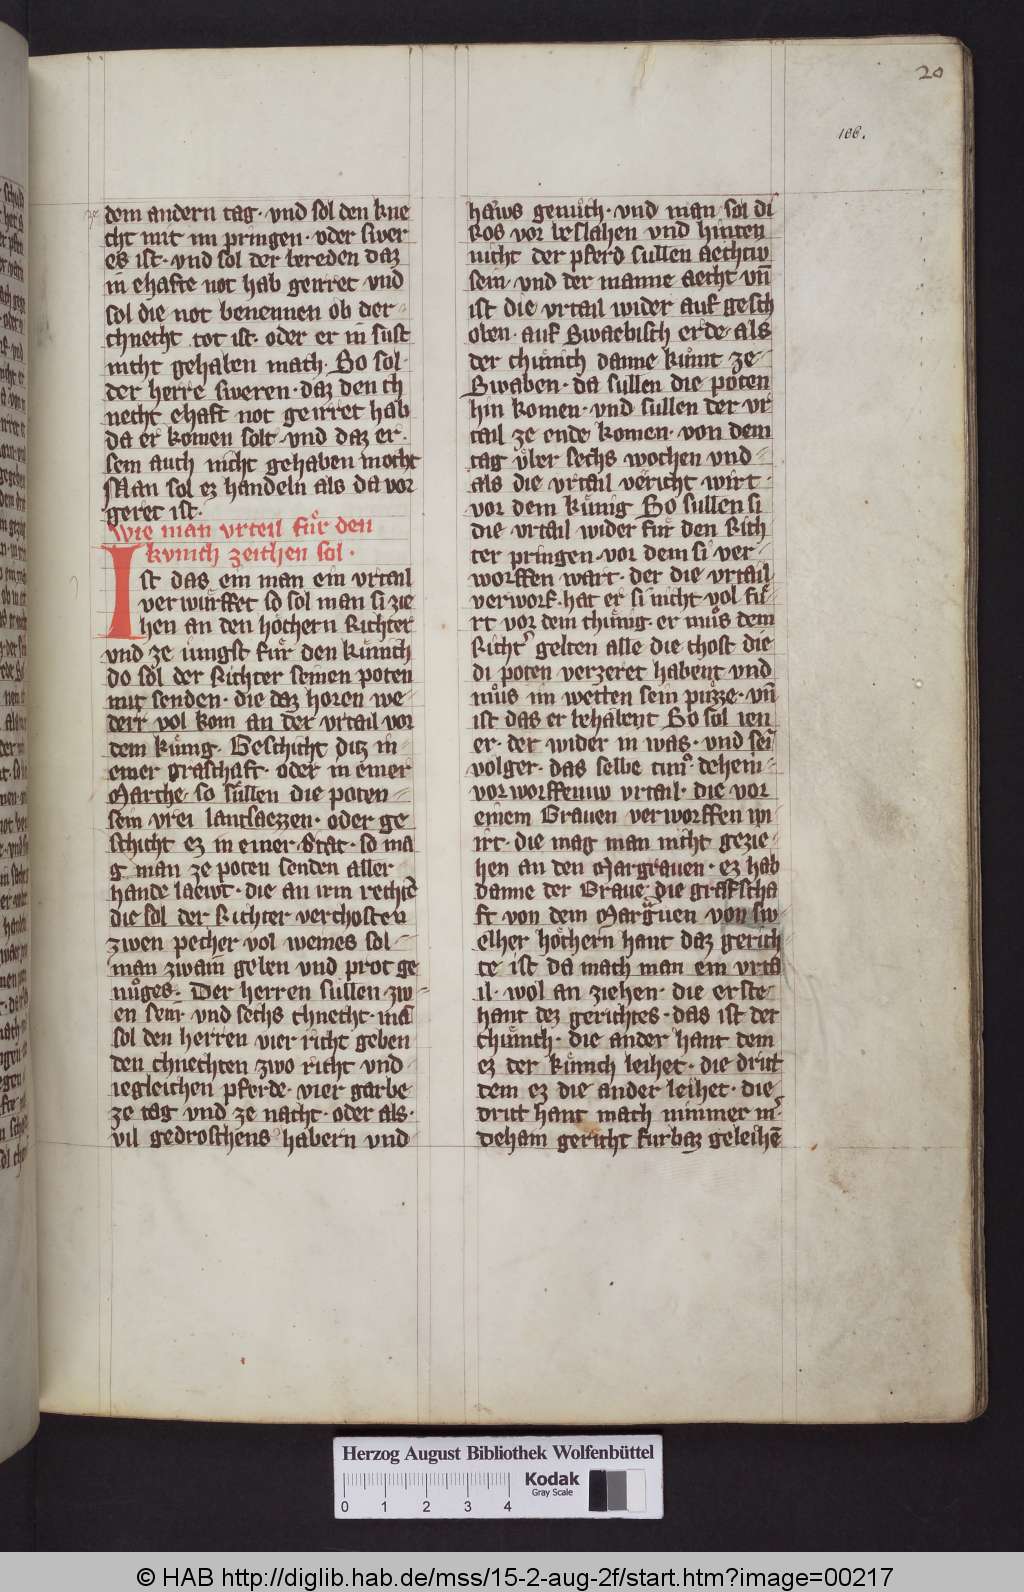 20
166.
dem andern tag · vnd sol den kne
cht mit im pringen · oder swer
es ist · vnd sol der bereden daz
in ehafte not hab geirret vnd
sol die not benennen ob der
chnecht tot ist · oder er in sust
nicht gehaben mach. So sol ·
der herre sweren · daz den ch
necht ehaft not geirret hab
da er komen solt · vnd daz er ·
sein auch nicht gehaben mocht
Man sol ez handeln als da vor
geret ist.
Wie man vrteil fuͤr den
kvnich zeichen sol ·
Ist das ein man ein vrtail
verwuͤrffet so sol man si zie
hen an den hochern Richter
vnd ze iungst fuͤr den kuͤnich
do sol der Richter seinen poten
mit senden · die daz horen we
derr vol kom an der vrtail vor
dem kuͤnig. Geschicht ditz in
einer graschaft · oder in einer
Marche, so suͤllen die poten
sein vrei lantsaezzen · oder ge
schicht ez in einer Stat · so ma
g man ze poten senden aller
hande laewt · die an irm rechtē
die sol der Richter verchosten
zwen pecher vol weines sol
man zwaim geben vnd prot ge
nuͦges. Der herren suͤllen zw
en sein vnd sechs chnecht · mā
sol den herren vier richt geben
den chnechten zwo richt vnd
iegleichen pferde · vier garbe
ze tag vnd ze nacht · oder als ·
vil gedroschens habern vnd
haws genuͦch · vnd man sol di
Ros vor beslahen vnd hinten
nicht der pferd sullen aechtiv
sein · vnd der manne aecht vn̄
ist die vrtail wider auf gesch
oben · auf Swaebisch erde als
der chuͤnich danne kuͤmt ze
Swaben · da sullen die poten
hin komen · vnd sullen der vr
tail ze ende komen · von dem
tag uͤber sechs wochen vnd
als die vrtail vericht wirt ·
vor dem kuͤnig So sullen si
die vrtail wider fuͤr den Rich
ter pringen · vor dem si ver
worffen wart · der die vrtail
verworf · hat er si nicht vol fuͤ
rt vor dem chuͤnig · er muͦs dem
Richt' gelten alle die chost die
di poten verzeret habent vnd
muͦs im wetten sein puͦzze · vn̄
ist das er behabent So sol ien
er · der wider in was · vnd sein
volger · das selbe tun. dehein
vor worffeniw vrtail · die vor
einem Grauen verworffen wi
irt · die mag man nicht gezie
hen an den Margrauen · ez hab
danne der Graue die grafscha
ft von dem Margͣuen von sw
elher hoͤchern hant daz gerich
te ist da mach man ein vrta
il · wol an ziehen · die erste
hant dez gerichtes · das ist der
chuͤnich · die ander hant dem
ez der kuͤnich leihet · die dritt
dem ez die ander leihet · die
dritt hant mach nimmer m'
deham gericht furbaz geleihē
Herzog August Bibliothek Wolfenbüttel
0 1 2 3 4
Kodak
Gray Scale
© HAB http://diglib.hab.de/mss/15-2-aug-2f/start.htm?image=00217